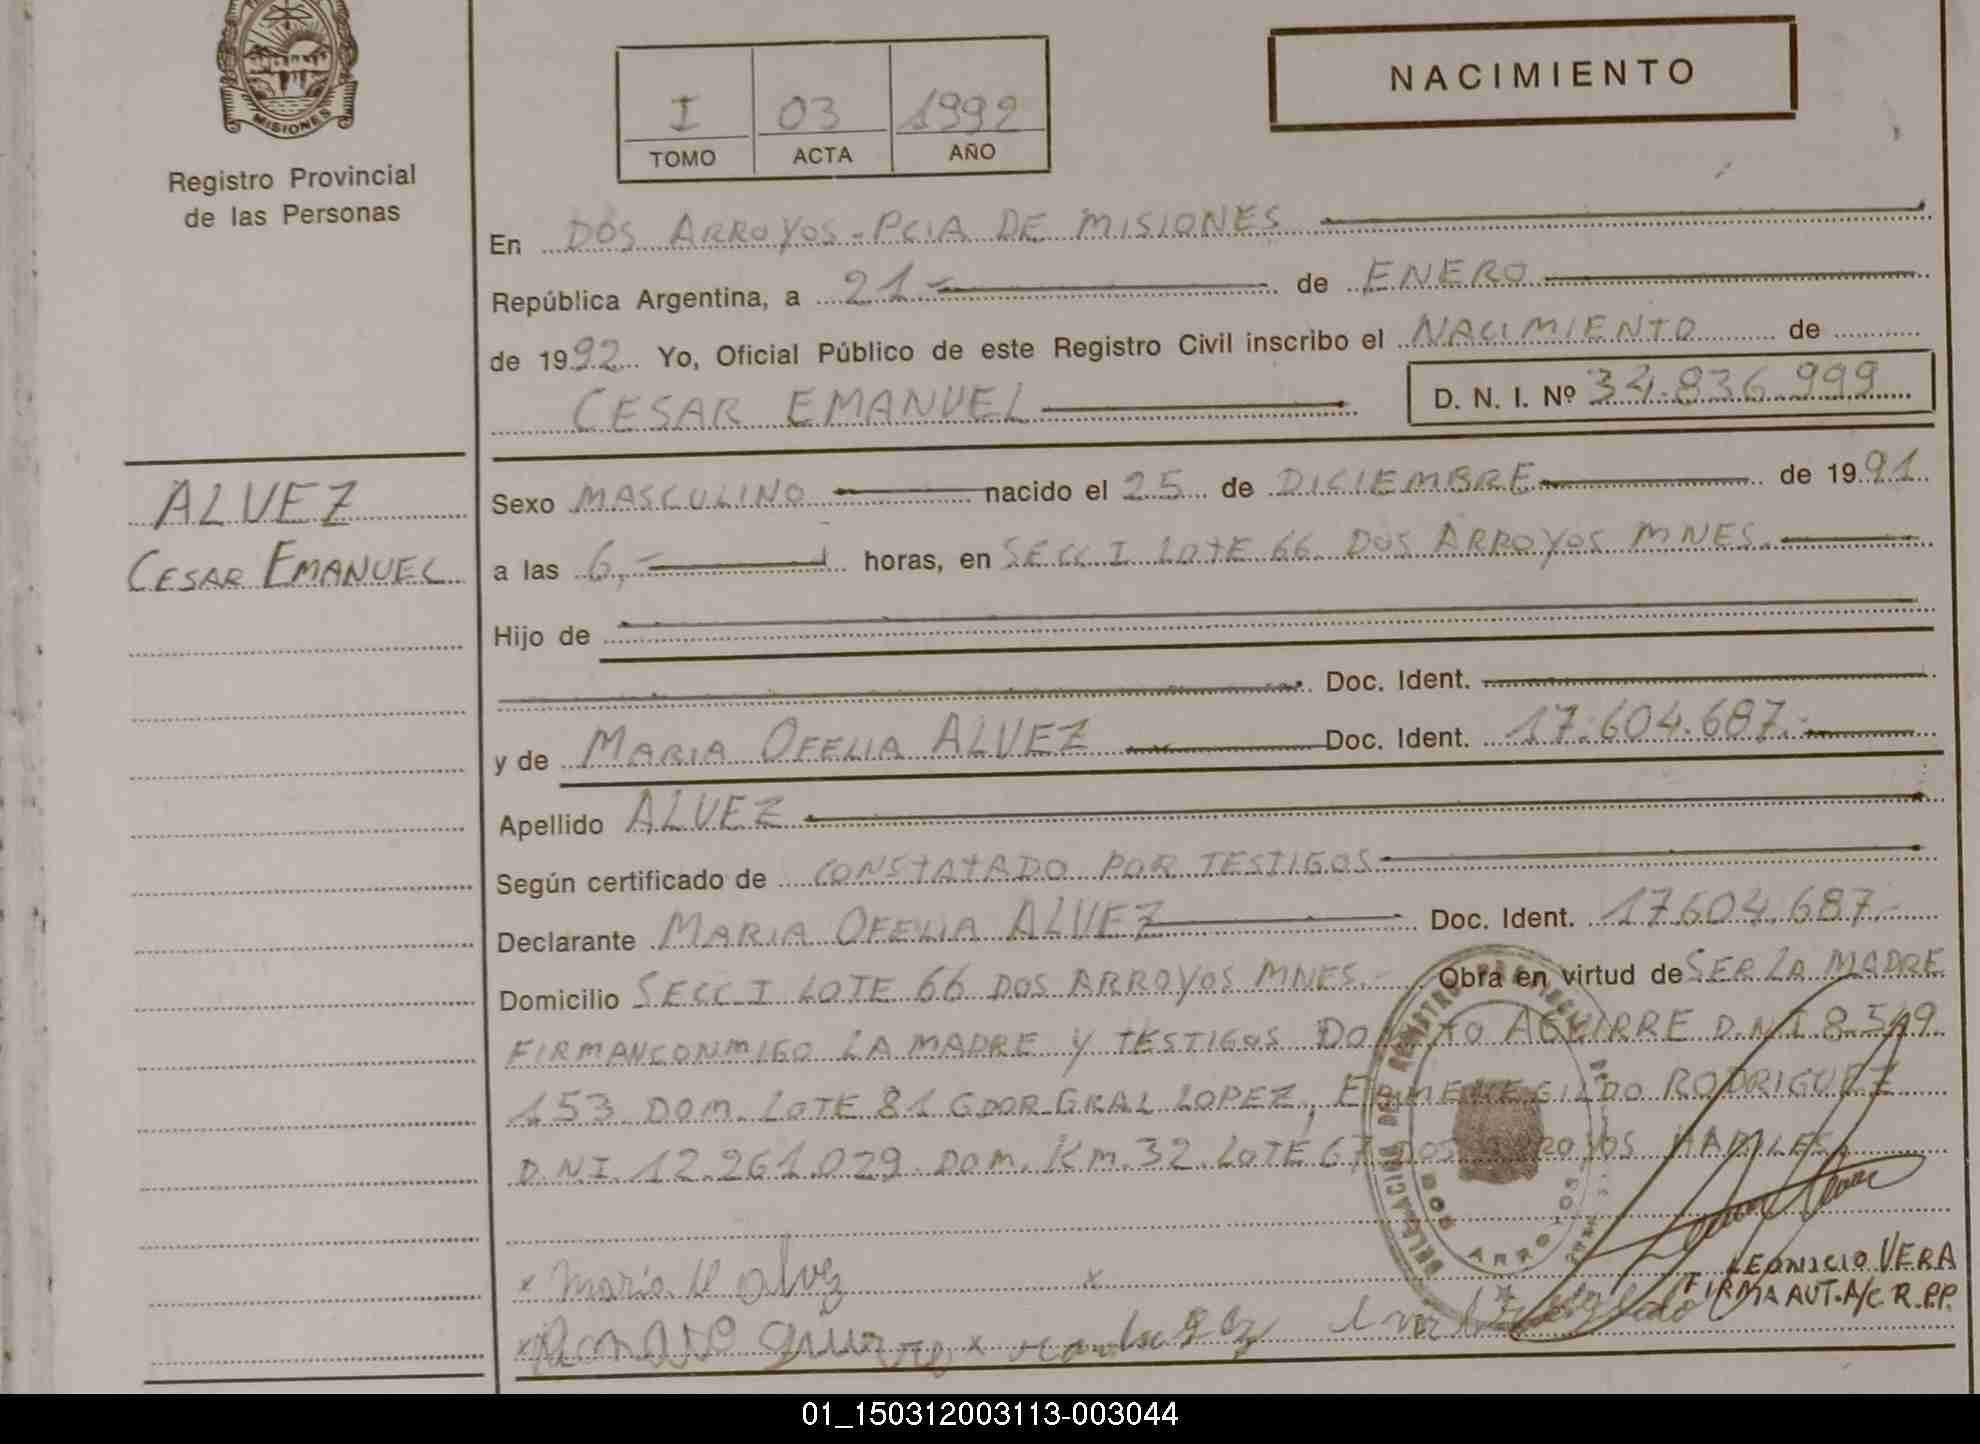 MISIONES
Registro Provincial
de las Personas
I 03 1992
TOMO ACTA AÑO
NACIMIENTO
En DOS ARROYOS - PCIA DE MISIONES
República Argentina, a 21 de ENERO
de 1992 Yo, Oficial Público de este Registro Civil inscribo el NACIMIENTO de
CESAR EMANUEL D. N. I. Nº 34.836.999
ALVEZ
CESAR EMANUEL
Sexo MASCULINO nacido el 25 de DICIEMBRE de 1991
a las 6,- horas, en SECC I LOTE 66 DOS ARROYOS MNES.
Hijo de
Doc. Ident.
y de MARIA OFELIA ALVEZ Doc. Ident. 17.604.687.-
Apellido ALVEZ
Según certificado de CONSTATADO POR TESTIGOS
Declarante MARIA OFELIA ALVEZ Doc. Ident. 17.604.687.-
Domicilio SECC I LOTE 66 DOS ARROYOS MNES.- Obra en virtud de SER LA MADRE
FIRMAN CONMIGO LA MADRE Y TESTIGOS AGUIRRE D.N.I 8.549
153 DOM. LOTE 81 GDOR GRAL LOPEZ, ERMENEGILDO RODRIGUEZ
D.N.I 12.261.029 DOM. Km. 32 LOTE 67 DOS ARROYOS
DOS ARROYOS
x Maria O alvez x
LEONICIO VERA
FIRMA AUT. A/C R.P.P.
01_150312003113-003044